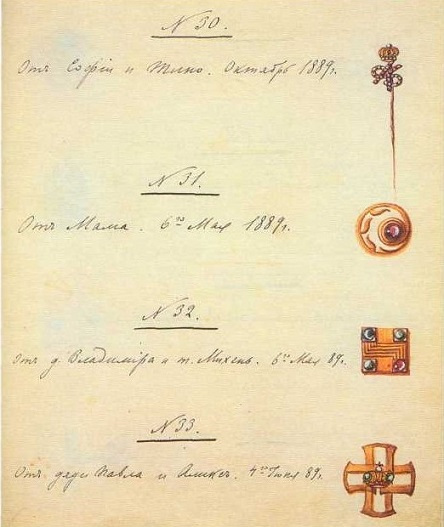 N 30.
Отъ Софіи и Тино. Октябрь 1889г.
N 31.
Отъ Мама. 6го Мая 1889г.
N 32.
Отъ д. Владиміра и т. Михень. 6го Мая 89г.
N 33.
Отъ дяди Павла и Аликсъ. 4го Іюня 89г.